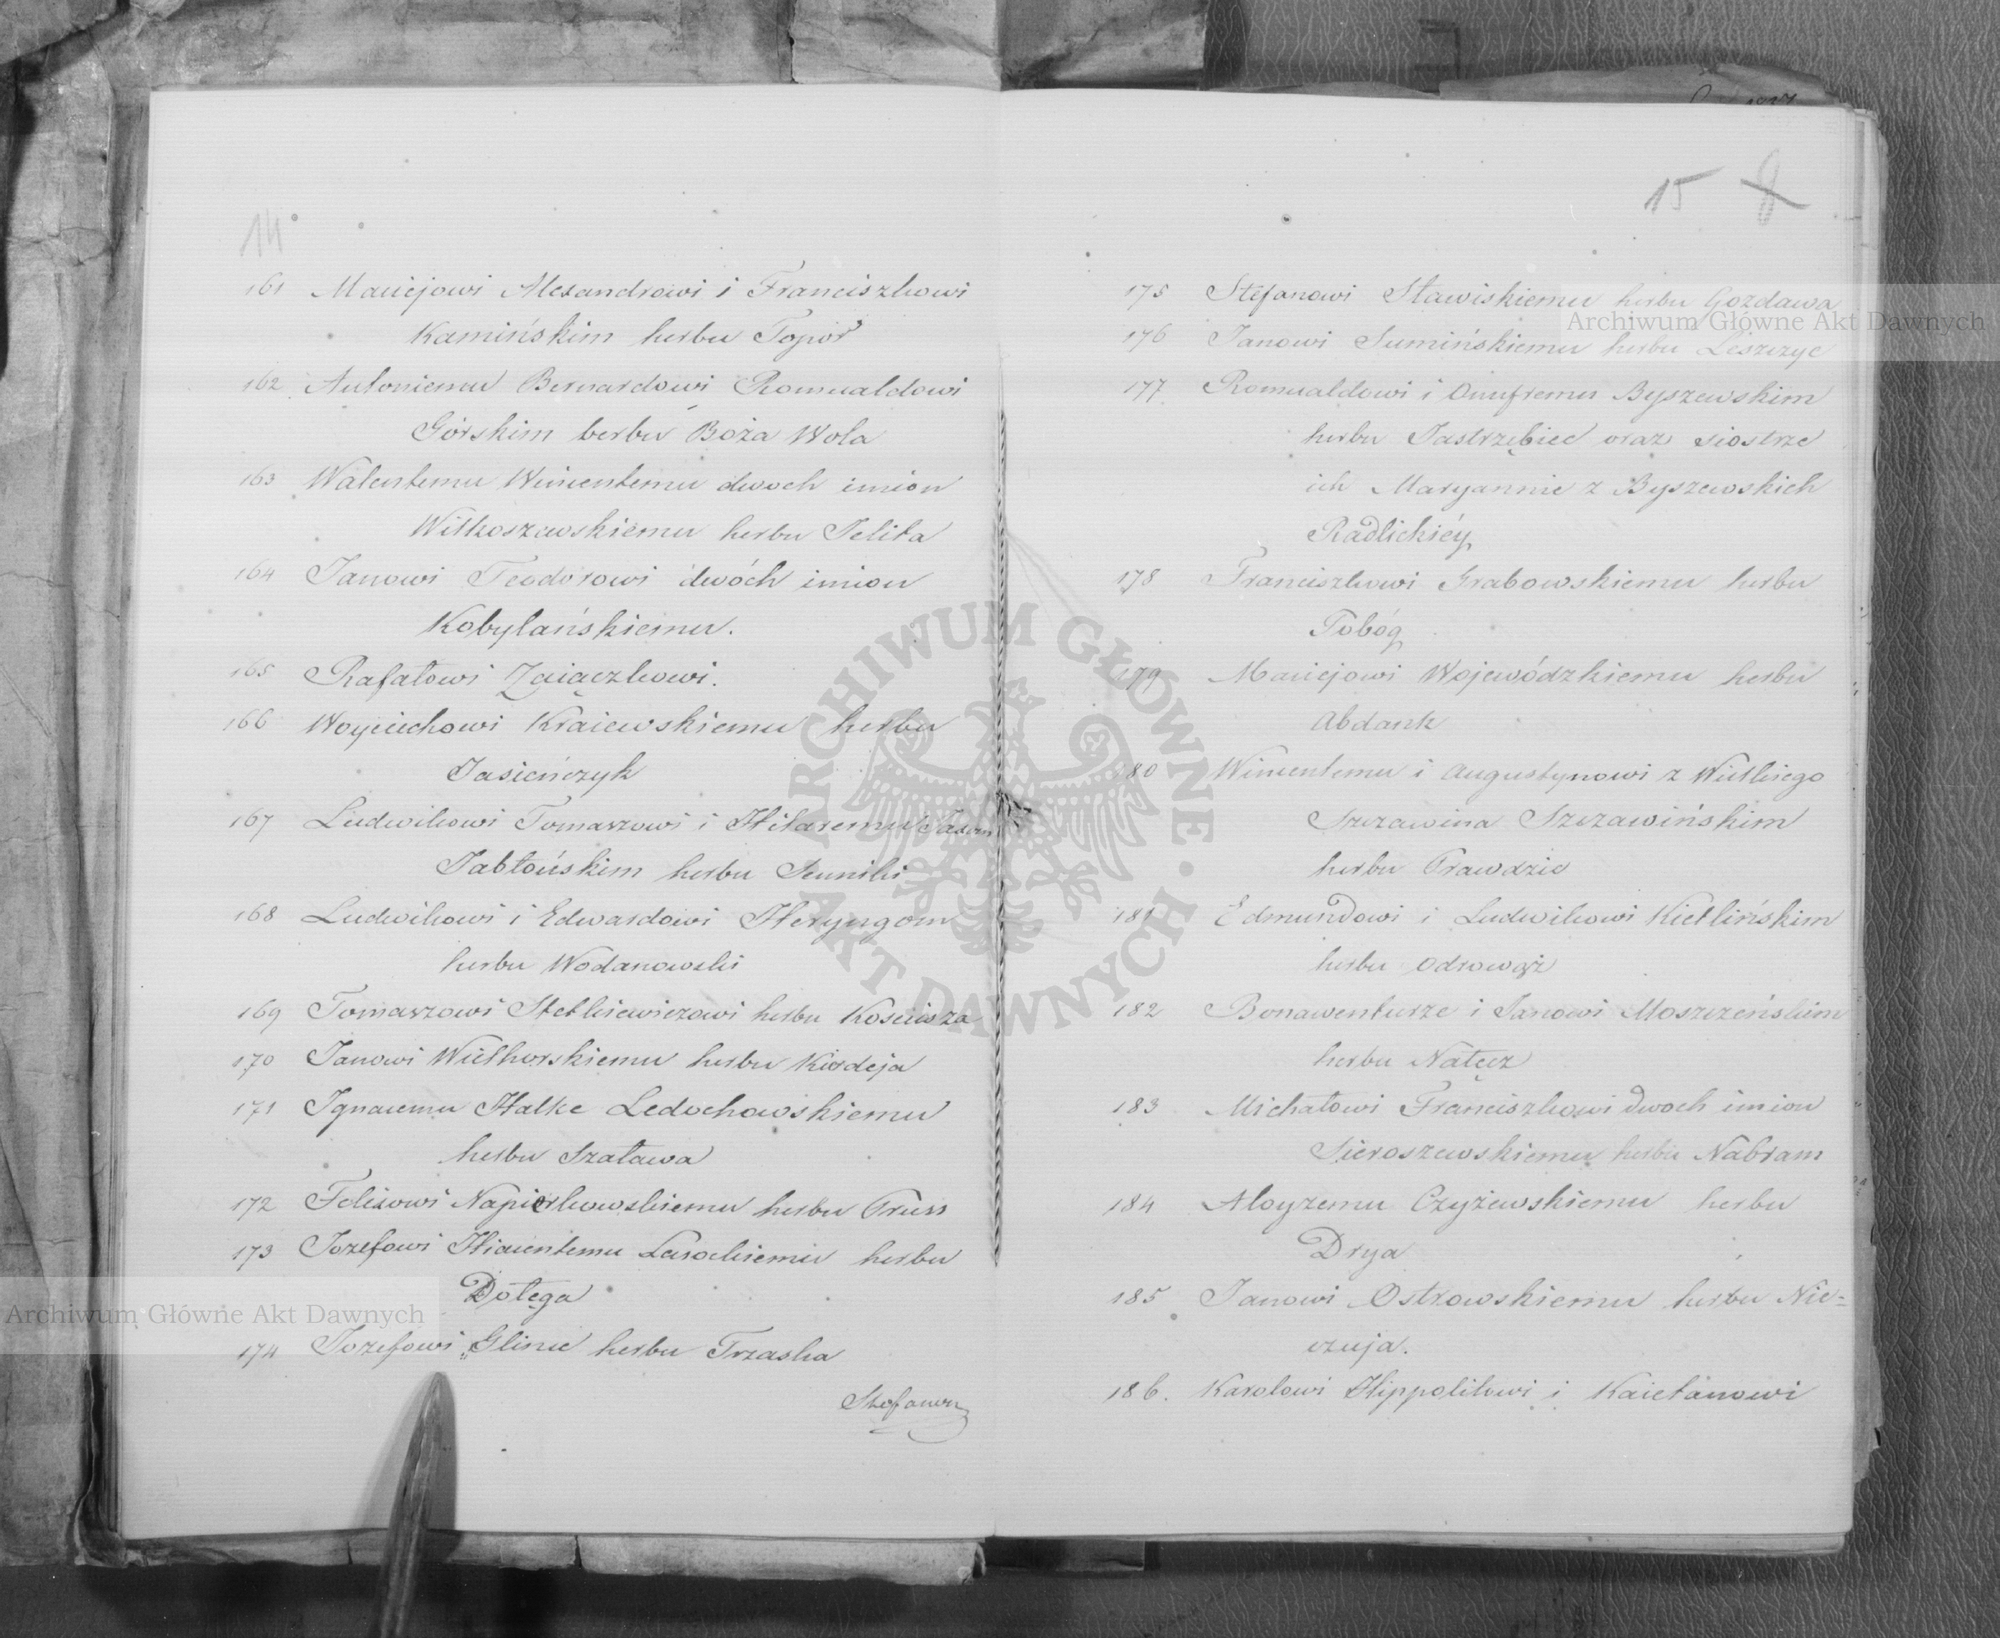 14
161 Maciejowi Alexandrowi i Franciszkowi
Kamińskim herbu Topór
162 Antoniemu Bernardowi Romualdowi
Górskim herbu Boża Wola
163 Walentemu Wincentemu dwóch imion
Witkoszewskiemu herbu Jelita
164 Janowi Teodorowi dwóch imion
Kobylańskiemu.
165 Rafałowi Zaiączkowi.
166 Woyciechowi Kraiewskiemu herbu
Jasieńczyk
167 Ludwikowi Tomaszowi i Hilaremu
Jabłońskim herbu
168 Ludwikowi i Edwardowi Heryngom
herbu Wodanowski
169 Tomaszowi Stetkiewiczowi herbu Kościesza
170 Janowi Wilhorskiemu herbu Kierdeja
171 Ignacemu Halke Ledochowskiemu
herbu Szaława
172 Felixowi Napiórkowskiemu herbu Pruss
173 Jozefowi Hiacentemu Lasockiemu herbu
Dołęga
174 Jozefowi Glince herbu Trzaska
Stefanowi
15 8
175 Stefanowi Sławiskiemu herbu Gozdawa
176 Janowi Sumińskiemu herbu Leszczyc
177 Romualdowi i Onufremu Byszewskim
herbu Jastrzębiec oraz siostrze
ich Maryannie z Byszewskich
Radlickiéy
178 Franciszkowi Grabowskiemu herbu
Pobóg
179 Maciejowi Wojewódzkiemu herbu
Abdank
180 Wincentemu i Augustynowi z Wielkiego
Szczawina Szczawińskim
herbu Prawdzic
181 Edmundowi i Ludwikowi Kietlińskim
herbu Odrowąż
182 Bonawenturze i Janowi Moszczeńskim
herbu Nałęcz
183 Michałowi Franciszkowi dwóch imion
Sieroszewskiemu herbu Nabram
184 Aloyzemu Czyżewskiemu herbu
Drya
185 Janowi Ostrowskiemu herbu Nie=
czuja.
186. Karolowi Hippolitowi i Kaietanowi
Archiwum Główne Akt Dawnych
Archiwum Główne Akt Dawnych
ARCHIWUM GŁÓWNE AKT DAWNYCH